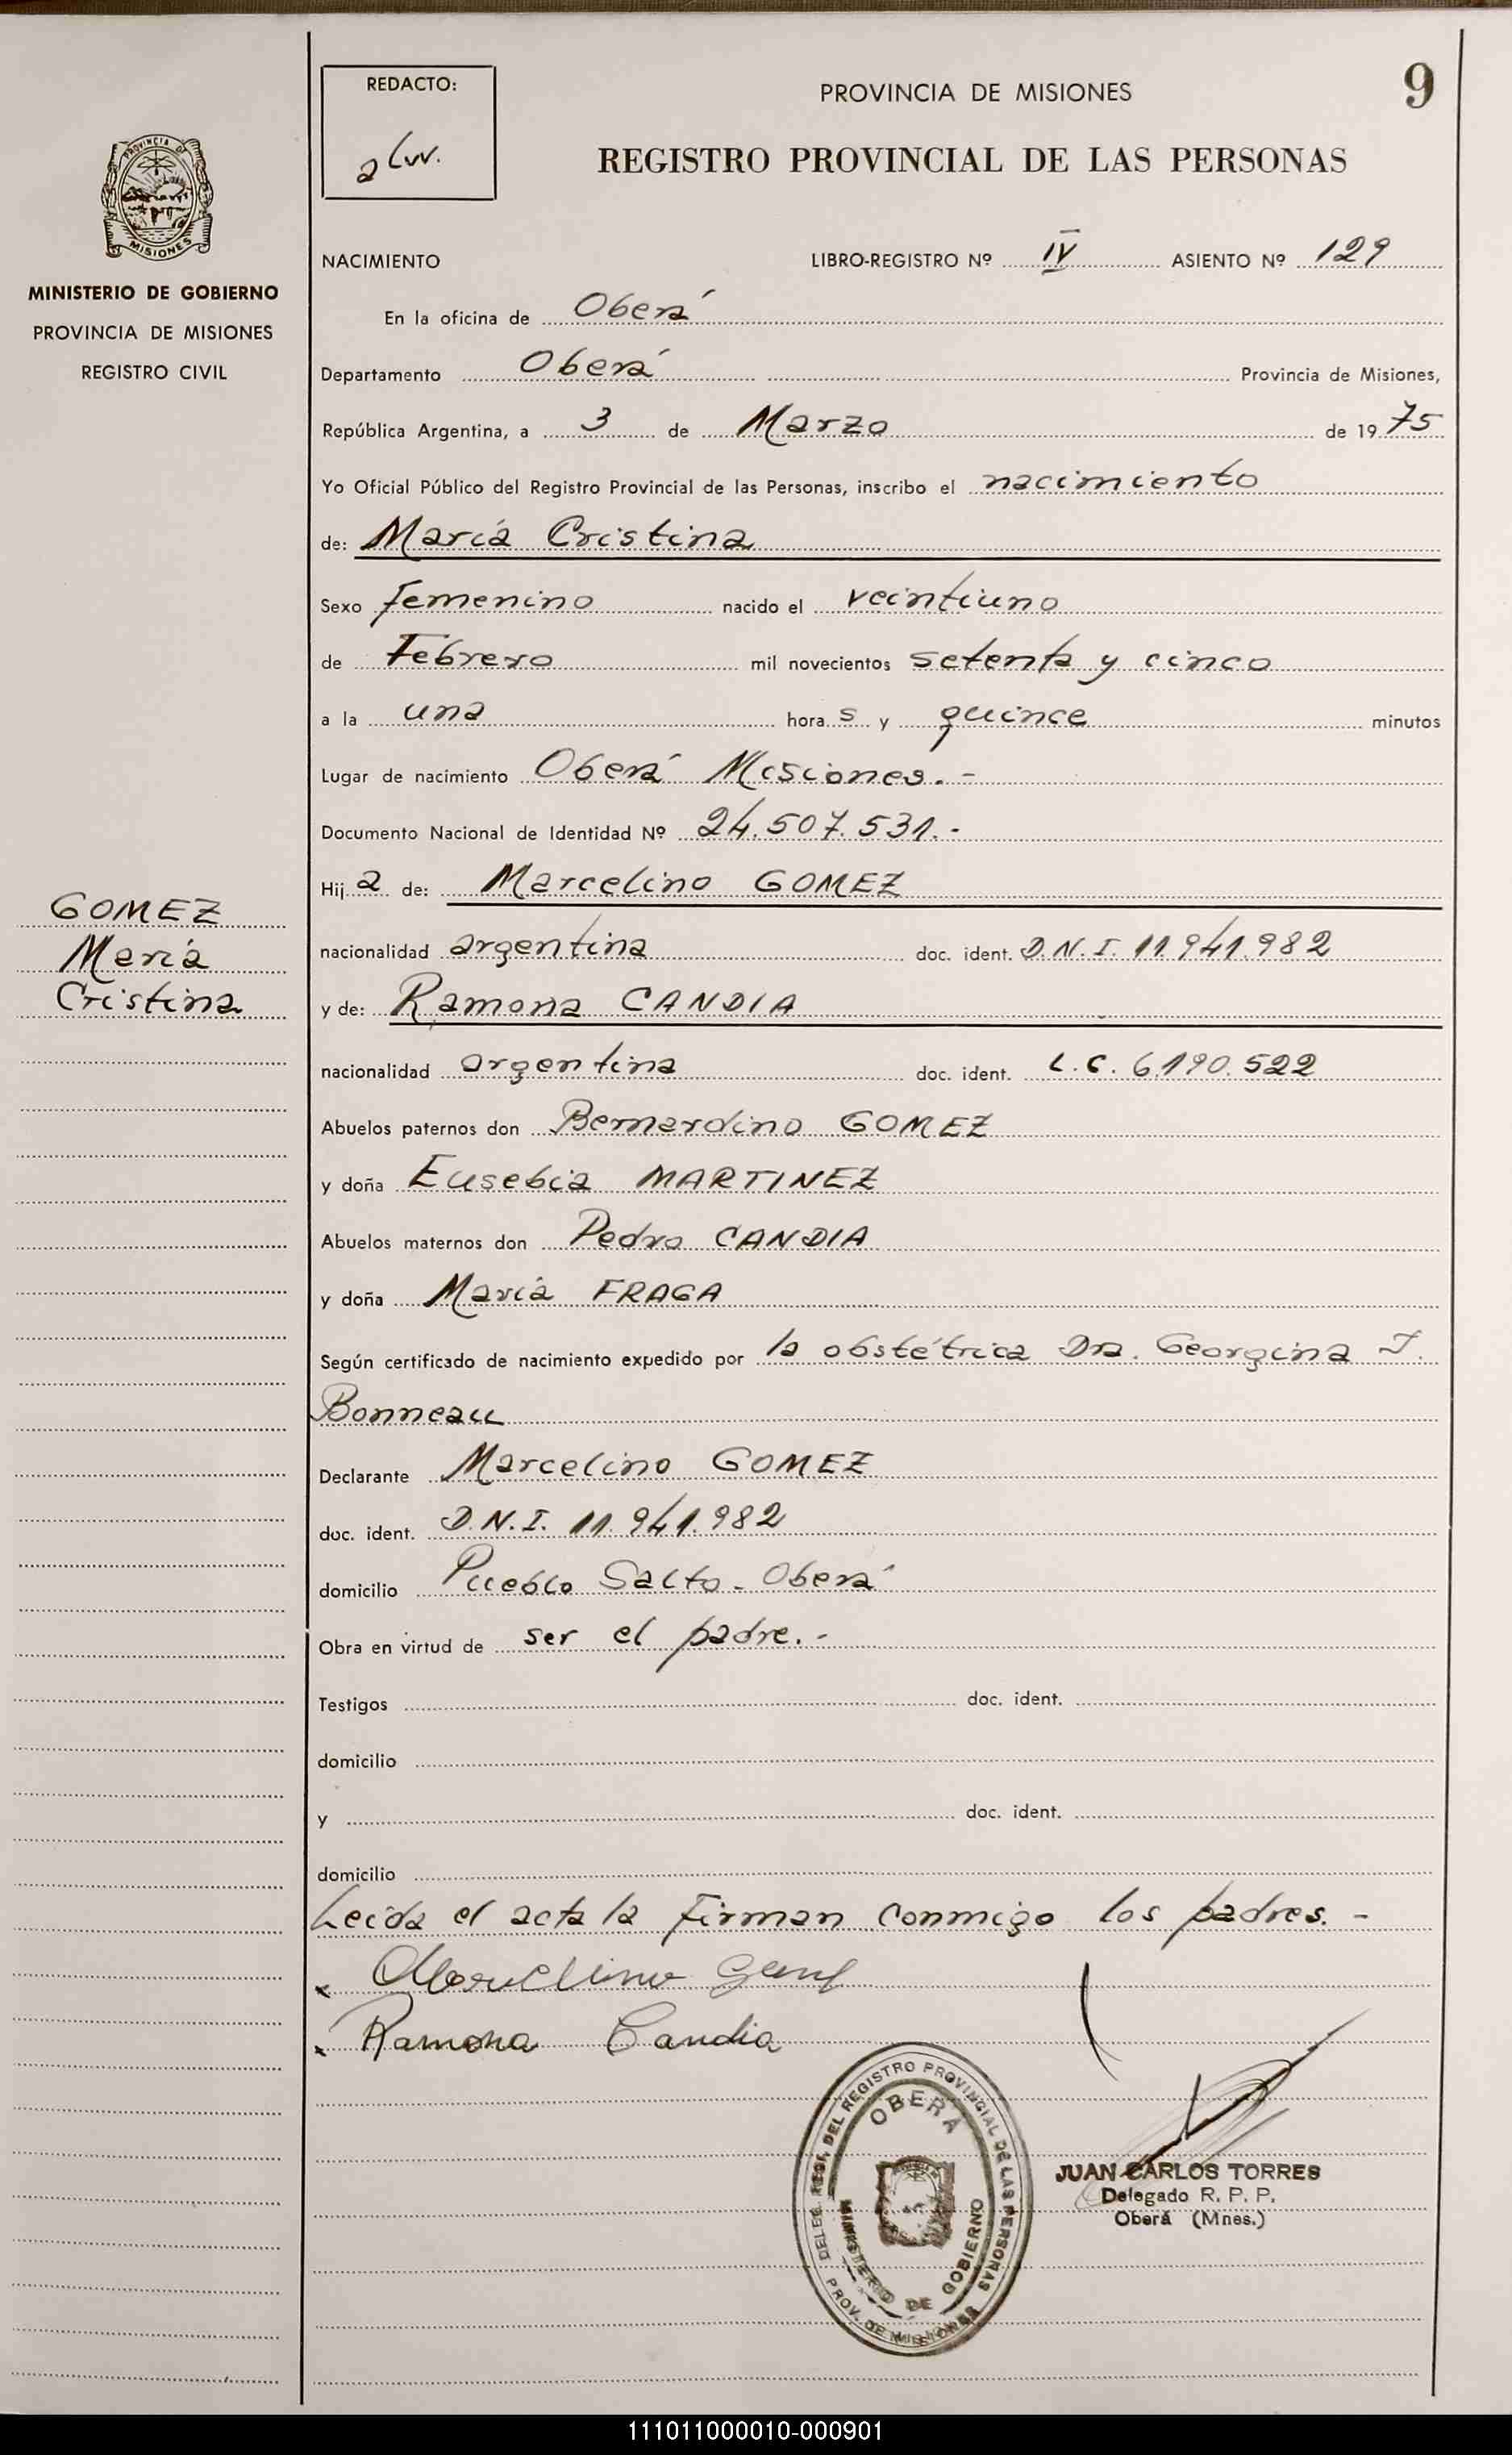 REDACTO:
PROVINCIA DE MISIONES
9
REGISTRO PROVINCIAL DE LAS PERSONAS
PROVINCIA DE
MISIONES
MINISTERIO DE GOBIERNO
PROVINCIA DE MISIONES
REGISTRO CIVIL
NACIMIENTO LIBRO-REGISTRO Nº IV ASIENTO Nº 129
En la oficina de Oberá
Departamento Oberá Provincia de Misiones,
República Argentina, a 3 de Marzo de 1975
Yo Oficial Público del Registro Provincial de las Personas, inscribo el nacimiento
de: María Cristina
Sexo femenino nacido el veintiuno
de Febrero mil novecientos setenta y cinco
a la una horas y quince minutos
Lugar de nacimiento Oberá Misiones.-
Documento Nacional de Identidad Nº 24.507.531.-
Hija de: Marcelino GOMEZ
GOMEZ
María
Cristina
nacionalidad argentina doc. ident. D.N.I. 11.941.982
y de: Ramona CANDIA
nacionalidad argentina doc. ident. L.C. 6.190.522
Abuelos paternos don Bernardino GOMEZ
y doña Eusebia MARTINEZ
Abuelos maternos don Pedro CANDIA
y doña María FRAGA
Según certificado de nacimiento expedido por la obstétrica Dra. Georgina J.
Bonneau
Declarante Marcelino GOMEZ
doc. ident. D.N.I. 11.941.982
domicilio Pueblo Salto - Oberá
Obra en virtud de ser el padre.-
Testigos doc. ident.
domicilio
y doc. ident.
domicilio
Leída el acta la firman conmigo los padres.-
x Marcelino
x Ramona Candia
DELEG. REGI. DEL REGISTRO PROVINCIAL DE LAS PERSONAS
OBERA
MINISTERIO DE GOBIERNO
PROV. DE MISIONES
JUAN CARLOS TORRES
Delegado R. P. P.
Oberá (Mnes.)
111011000010-000901